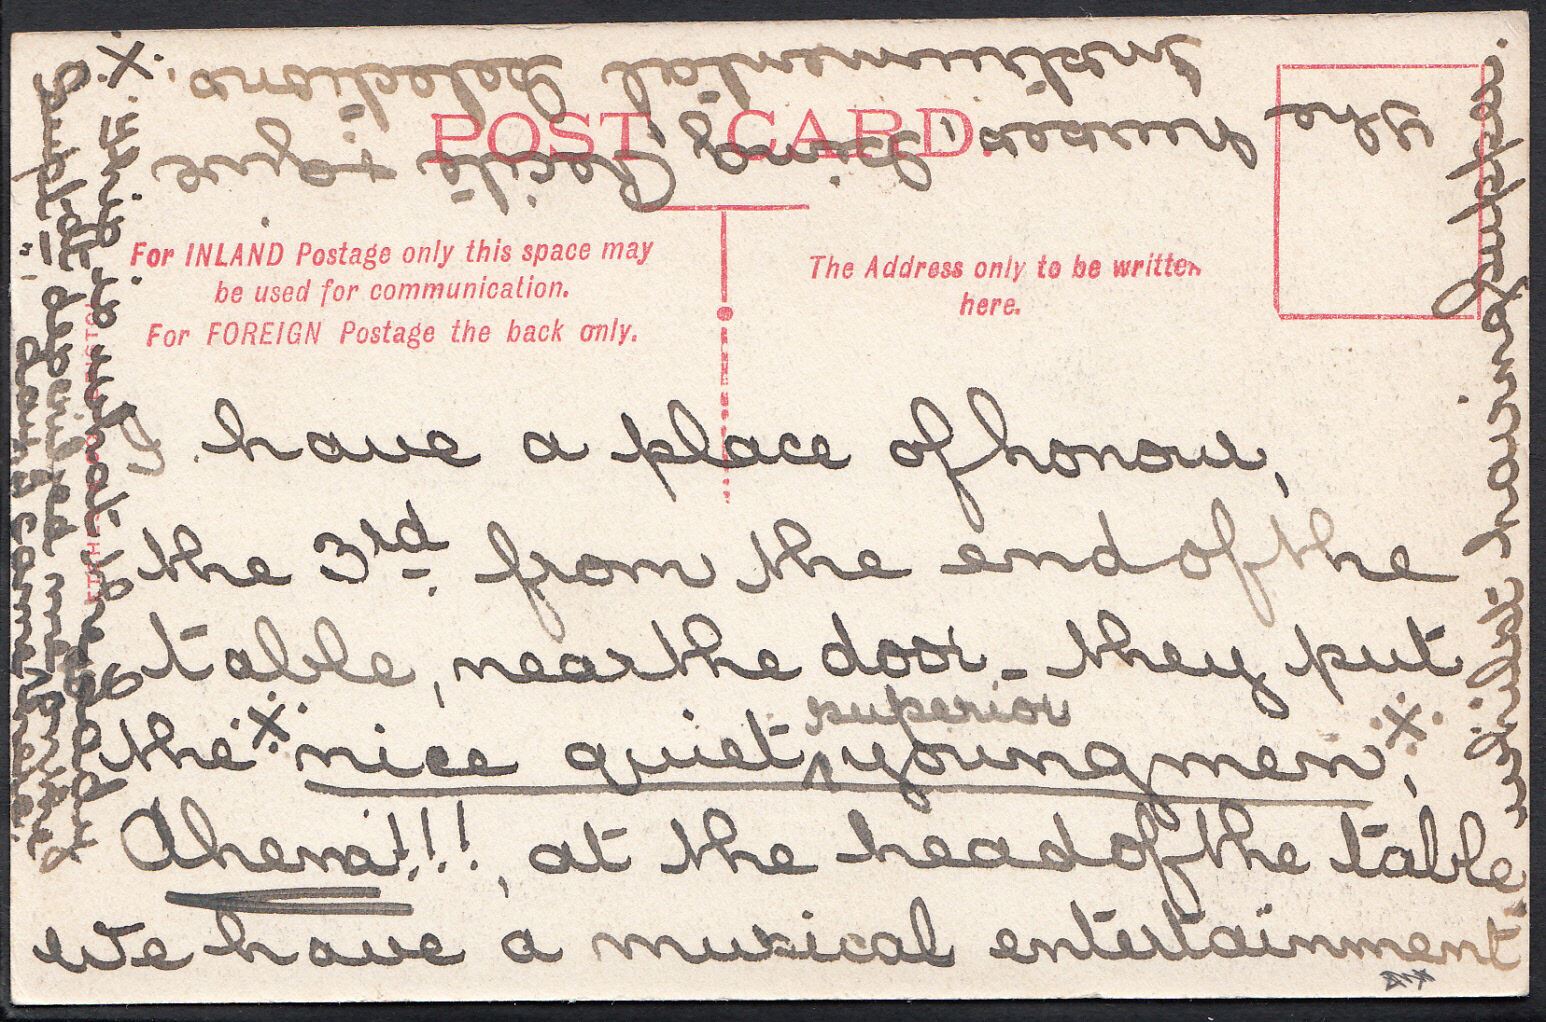 POST CARD.
For INLAND Postage only this space may
be used for communication.
For FOREIGN Postage the back only.
The Address only to be written
here.
I have a place of honour,
the 3rd from the end of the
table, near the door - they put
the x nice quiet, superior young men x,
Ahem!!!, at the head of the table
we have a musical entertainment
whilst having supper.
The nurses, sing, Recite & give
instrumental selections.
X. This is